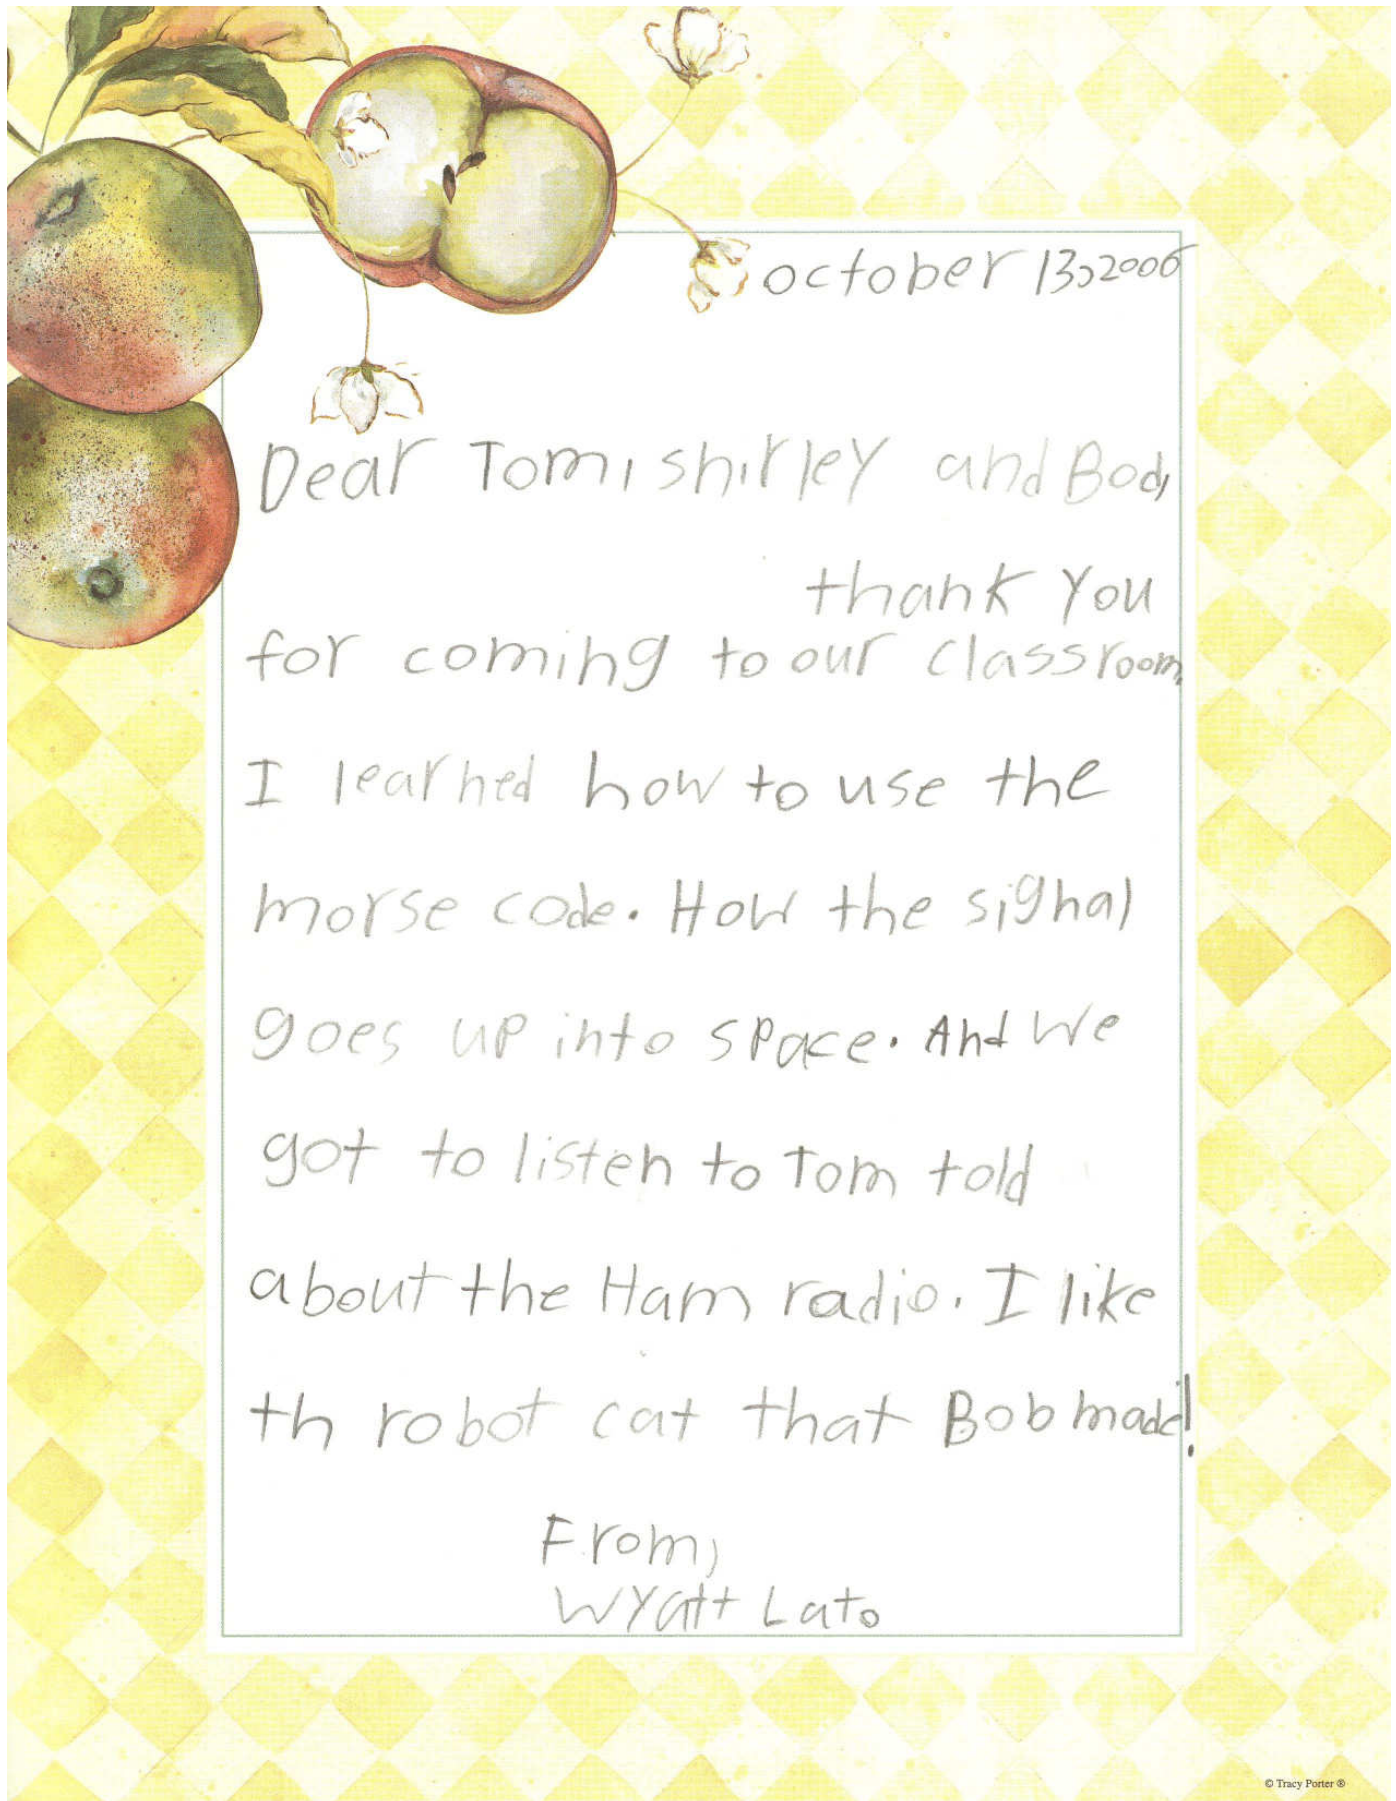 october 13, 2006
Dear Tom, shirley and Bod,
thank you
for coming to our classroom.
I learned how to use the
morse code. How the signal
goes up into space. And we
got to listen to Tom told
about the Ham radio. I like
th robot cat that Bob made!
From,
Wyatt Lato
© Tracy Porter ®